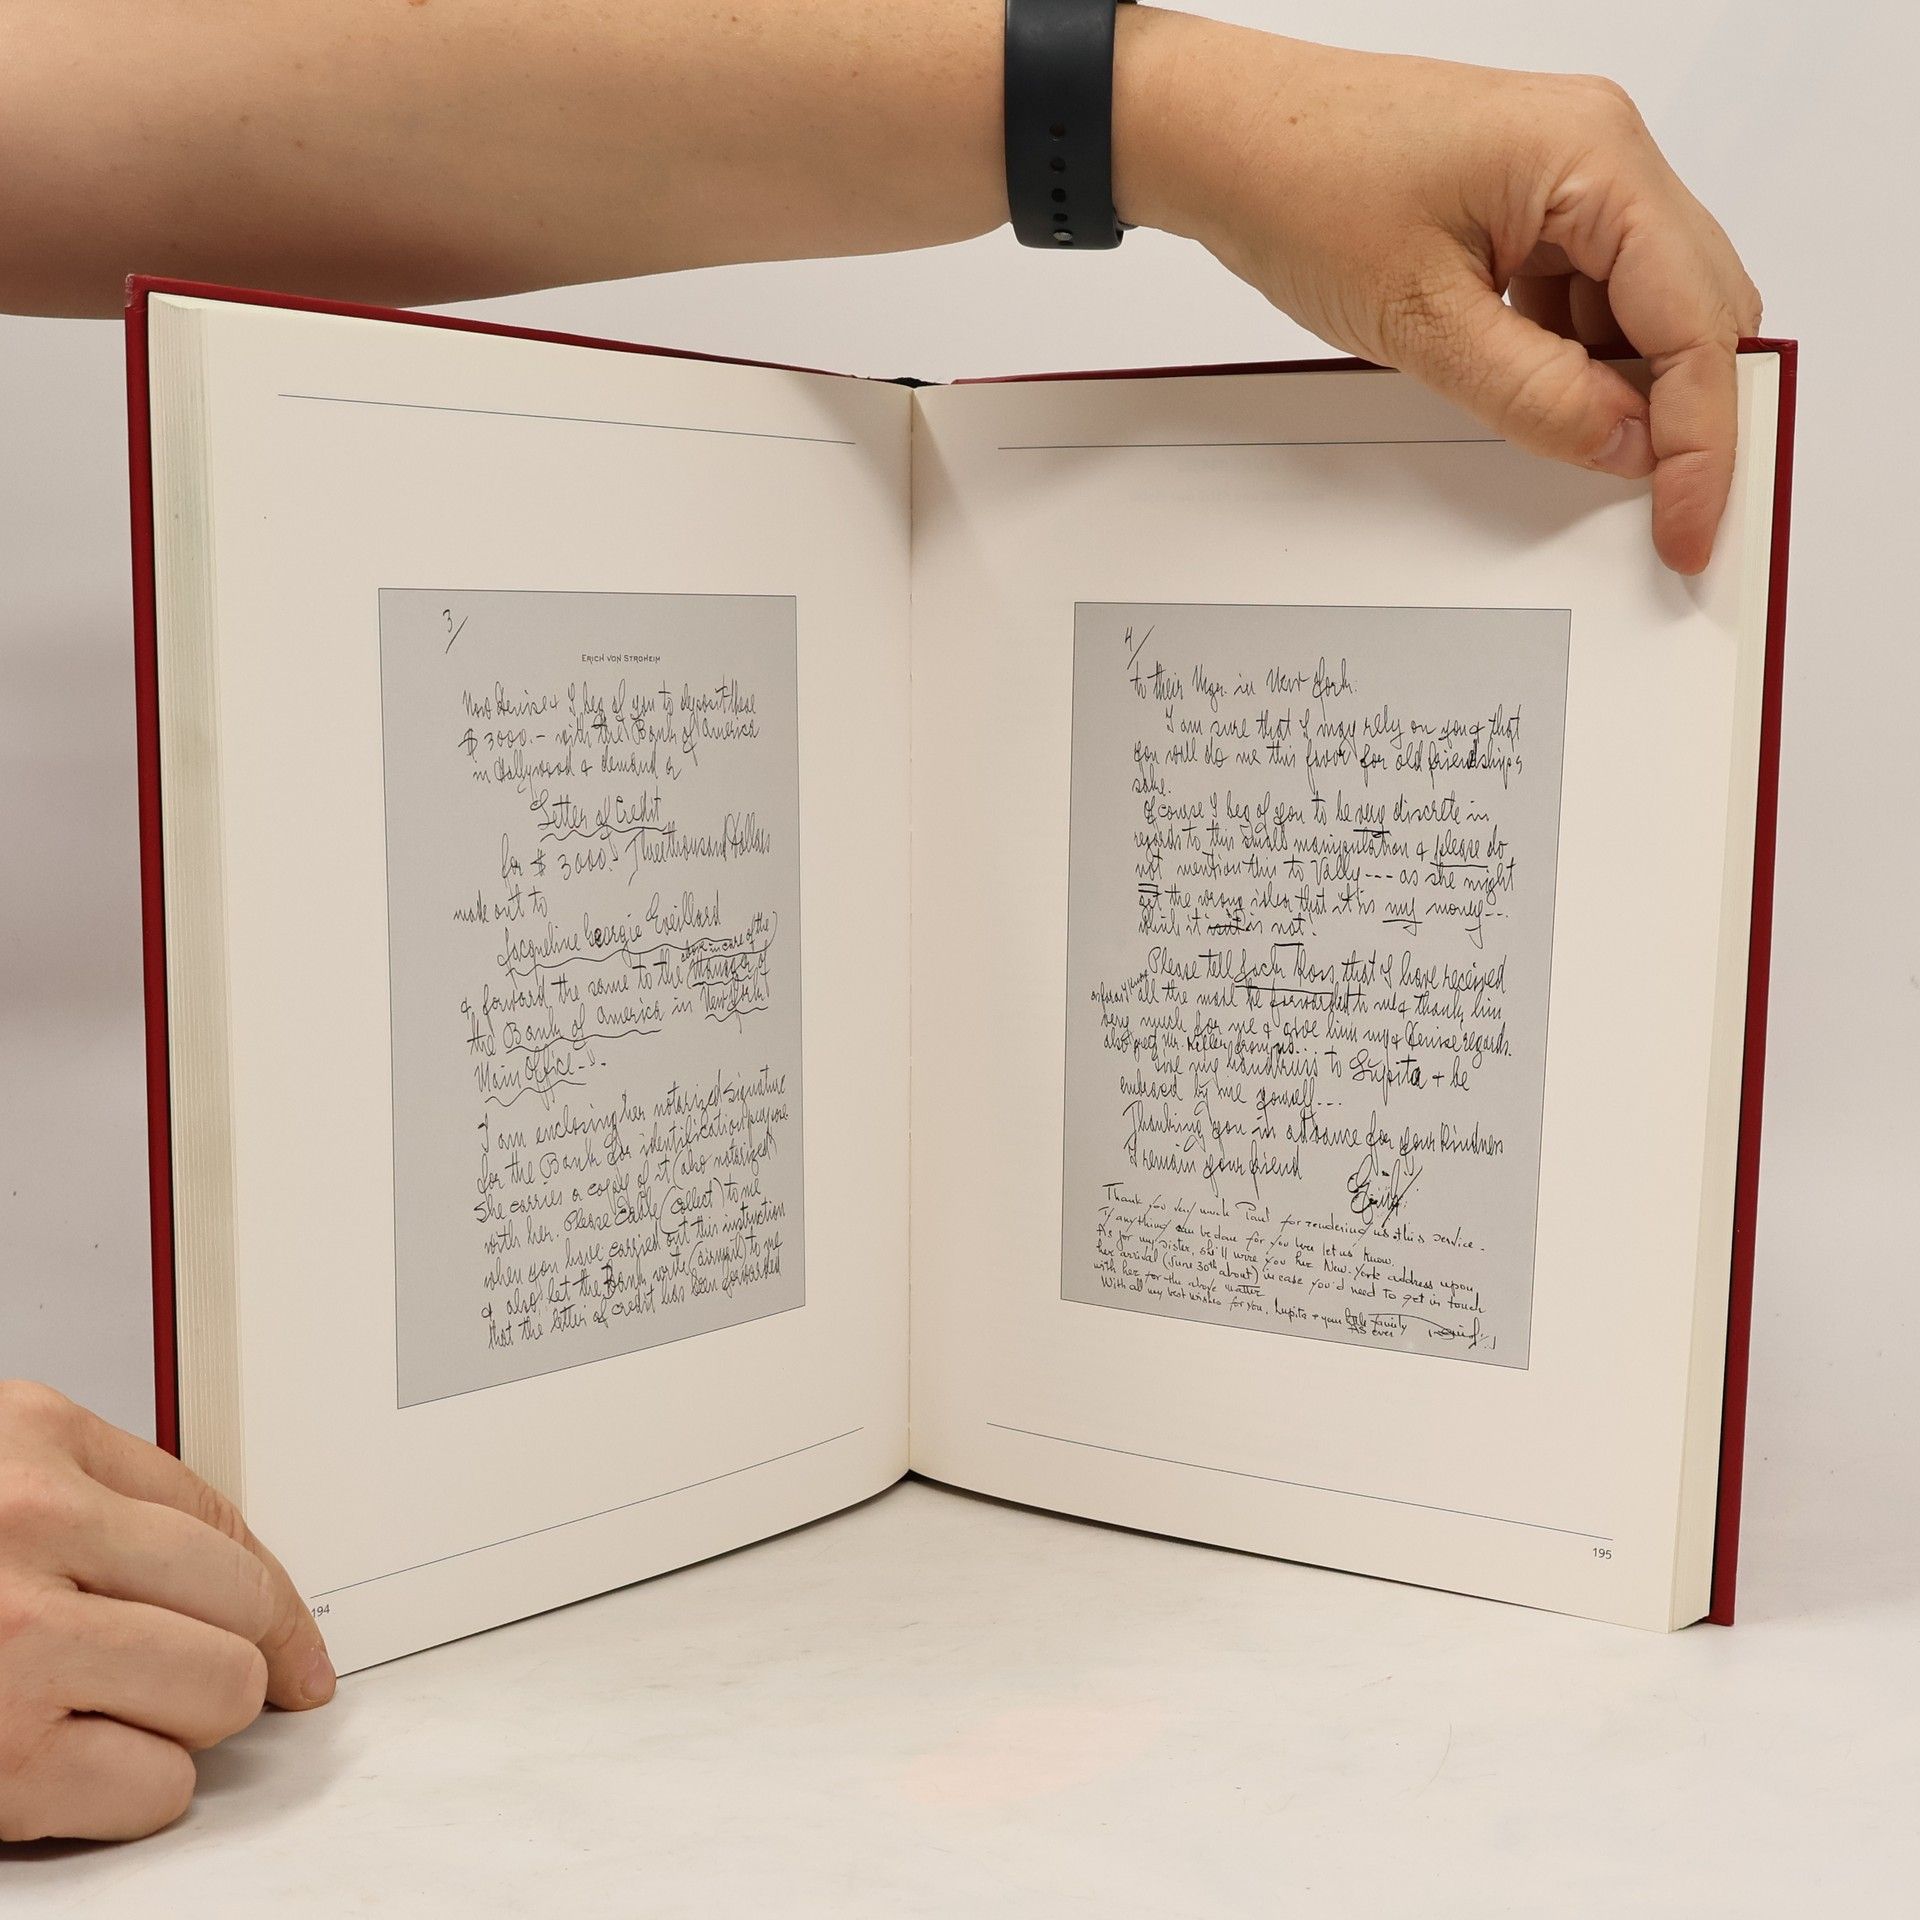 3/
ERICH VON STROHEIM
Now Denise & I beg of you to deposit these
$ 3000.- with the Bank of America
in Hollywood & demand a
Letter of Credit
for $ 3000. Threethousand Dollars
made out to
Jacqueline Georgie Eveillard
above in care of the
& forward the same to the (Manager of
the Bank of America in New York)
Main Office-.
I am enclosing her notarized signature
for the Bank for identification purpose.
She carries a copy of it (also notarized)
with her. Please Cable (collect) to me
when you have carried out this instruction
& also let the Bank write (airmail) to me
that the letter of credit has been forwarded
194
4/
to their Mgr. in New York.
I am sure that I may rely on you & that
you will do me this favor for old friendship's
sake.
Of course I beg of you to be very discrete in
regards to this small manipulation & please do
not mention this to Vally--- as she might
get the wrong idea that it is my money---
while it is not!
Please tell Jack Ross that I have received
as far as I know all the mail he forwarded to me & thank him
very much for me & give him my & Denise regards.
also greet Mr. Keller from us...
Give my handkuss to Lupita & be
embraced by me yourself...
Thanking you in advance for your kindness
I remain your friend
Erich
Thank you very much Paul for rendering us this service.
If anything can be done for you here let us know.
As for my sister, she'll wire you her New-York address upon
her arrival (June 30th about) in case you'd need to get in touch
with her for the above matter
With all my best wishes for you, Lupita & your little family
As ever Denise
195